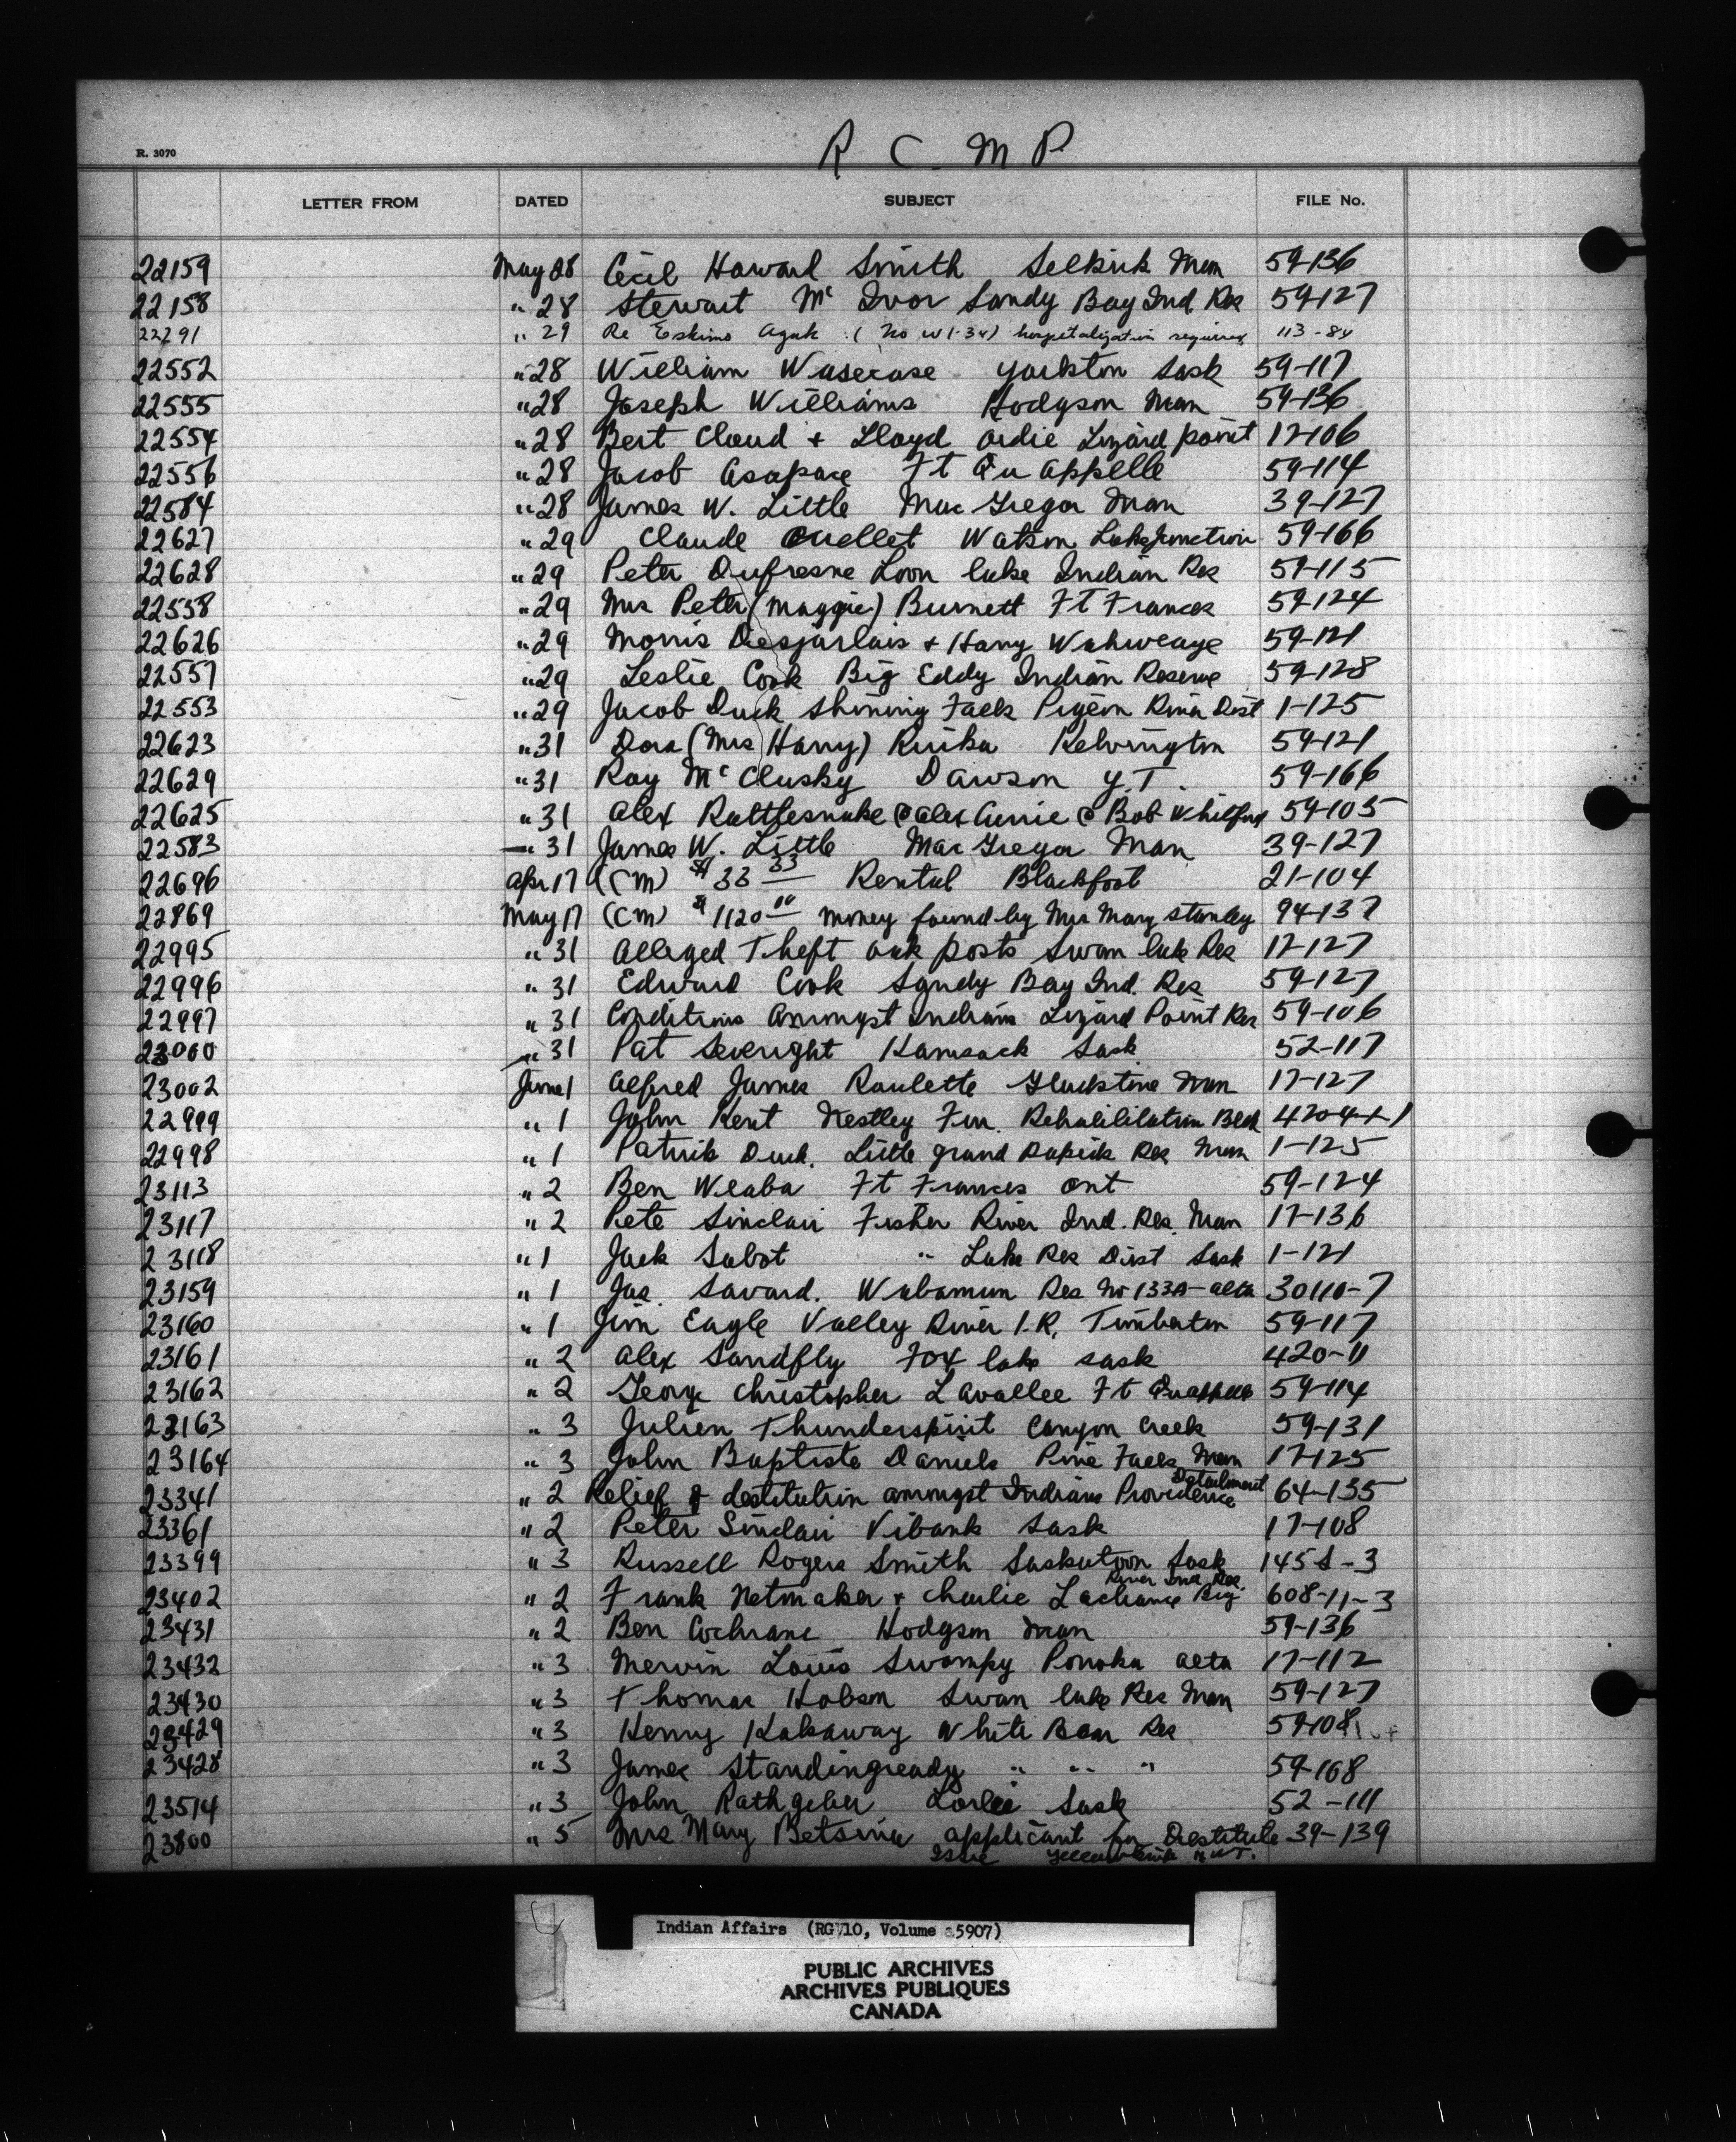 R C M P
R. 3070
LETTER FROM DATED SUBJECT FILE No.
22159 May 28 Cecil Howard Smith Selkirk Man 59-136
22158 " 28 Stewart Mc Ivor Sandy Bay Ind. Res 59-127
22291 " 29 Re Eskimo Agak (No W1-34) hospitalization required 113-84
22552 " 28 William Wasecase Yorkton Sask 59-117
22555 " 28 Joseph Williams Hodgson Man 59-136
22554 " 28 Bert Cloud + Lloyd Lizard point 17-106
22556 " 28 Jacob Asapace Ft Qu Appelle 59-114
22584 " 28 James W. Little Mac Gregor Man 39-127
22627 " 29 Claude Ouellet Watson Lake Junction 59-166
22628 " 29 Peter Dufresne Loon lake Indian Res 59-115
22558 " 29 Mrs Peter (Maggie) Burnett Ft Frances 59-124
22626 " 29 Morris Desjarlais + Harry 59-121
22557 " 29 Leslie Cook Big Eddy Indian Reserve 59-128
22553 " 29 Jacob Duck Shining Falls Pigeon River Dist 1-125
22623 " 31 Dora (Mrs Harry) Kelvington 59-121
22629 " 31 Ray Mc Clusky Dawson Y.T. 59-166
22625 " 31 Alex Rattlesnake @ Alex @ Bob Whitford 59-105
22583 " 31 James W. Little Mac Gregor Man 39-127
22696 Apr 17 (CM) $33 33 Rental Blackfoot 21-104
22869 May 17 (CM) $1120 00 money found by Mrs Mary Stanley 94-137
22995 " 31 Alleged Theft oak posts Swan lake Res 17-127
22996 " 31 Edward Cook Sandy Bay Ind. Res 59-127
22997 " 31 Conditions Amongst Indians Lizard Point Res 59-106
23000 " 31 Pat Severight Kamsack Sask 52-117
23002 June 1 Alfred James Roulette Gladstone Man 17-127
22999 " 1 John Kent Nestley 420-4-1-1
22998 " 1 Patrick Duck. Little Grand Rapids Res Man 1-125
23113 " 2 Ben Weaba Ft Frances Ont 59-124
23117 " 2 Pete Sinclair Fisher River Ind. Res. Man 17-136
23118 " 1 Jack Sabot " Lake Res Dist Sask 1-121
23159 " 1 Jas. Savard. Wabamun Res No 133A- Alta 30110-7
23160 " 1 Jim Eagle Valley River I.R. Timberton 59-117
23161 " 2 Alex Sandfly Fox lake Sask 420-11
23162 " 2 George Christopher Lavallee Ft Quappelle 59-114
23163 " 3 Julien Thunderspirit Canyon Creek 59-131
23164 " 3 John Baptiste Daniels Pine Falls Man 17-125
23341 " 2 Relief of destitution amongst Indians Providence Detachment 64-135
23361 " 2 Peter Sinclair Vibank Sask 17-108
23399 " 3 Russell Rogers Smith Saskatoon Sask 145 S-3
23402 " 2 Frank Netmaker + Charlie Lachance Big River Ind Res. 608-11-3
23431 " 2 Ben Cochrane Hodgson Man 59-136
23432 " 3 Mervin Louis Swampy Ponoka Alta 17-112
23430 " 3 Thomas Hobson Swan lake Res Man 59-127
23429 " 3 Henry Kakaway White Bear Res 59-108
23428 " 3 James Standingready " " " 59-108
23514 " 3 John Rathgeber Lorlie Sask 52-111
23800 " 5 Mrs Mary Betsina applicant for Destitute 39-139
Issue Yellowknife N.W.T.
Indian Affairs (RG 10, Volume 5907)
PUBLIC ARCHIVES
ARCHIVES PUBLIQUES
CANADA